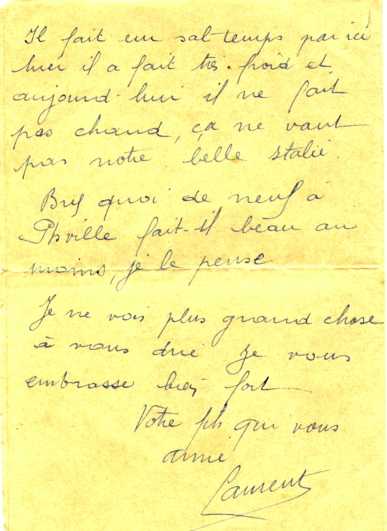 Il fait un sal temps par ici
hier il a fait très froid et
aujourd'hui il ne fait
pas chaud, ça ne vaut
pas notre belle Italie.
Bref quoi de neuf à
Phville fait-il beau au
moins, je le pense
Je ne vois plus grand chose
à vous dire je vous
embrasse bien fort
Votre fils qui vous
aime
Laurent